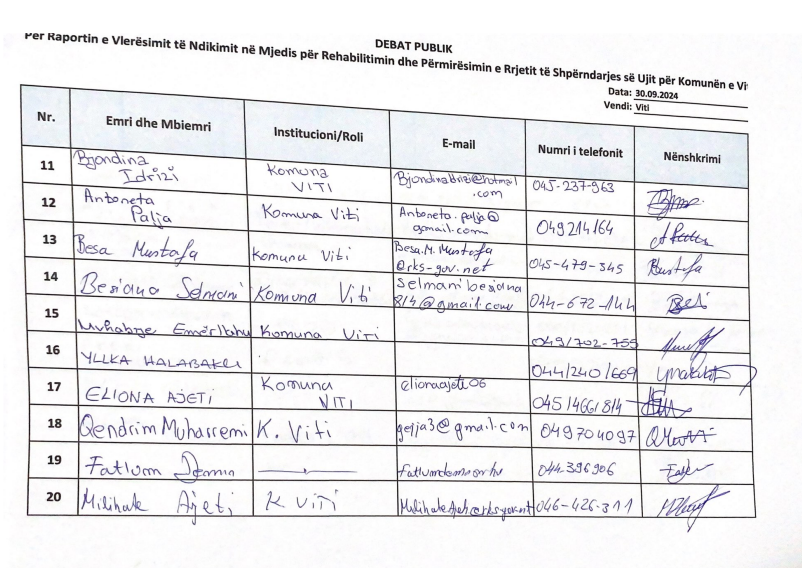 DEBAT PUBLIK
Për Raportin e Vlerësimit të Ndikimit në Mjedis për Rehabilitimin dhe Përmirësimin e Rrjetit të Shpërndarjes së Ujit për Komunën e Vi
Data: 30.09.2024
Vendi: Viti
Nr. Emri dhe Mbiemri Institucioni/Roli E-mail Numri i telefonit Nënshkrimi
11 Bjondina Idrizi Komuna VITI 045-237-963
12 Antoneta Palja Komuna Viti Antoneta.palja@gmail.com 049214164
13 Besa Mustafa Komuna Viti Besa.M.Mustafa@rks-gov.net 045-479-345
14 Besiana Selmani Komuna Viti selmanibesiana814@gmail.com 044-672-144
15 Komuna Viti 049/702-755
16 YLLKA 044/240/669
17 ELIONA AJETI Komuna VITI elionaajeti06 045/466/814
18 Qendrim Muharremi K. Viti gerja3@gmail.com 049704097
19 Fatlum 044.396906
20 Milihate Ajeti K VITI 046-426-311